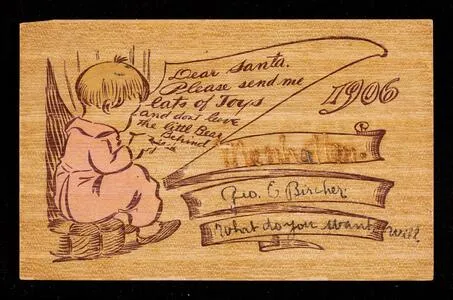 Dear Santa.
Please send me
lots of Toys
and dont leve
the little Bear
Behind
1906
Geo. E Bircher
What do you want Will